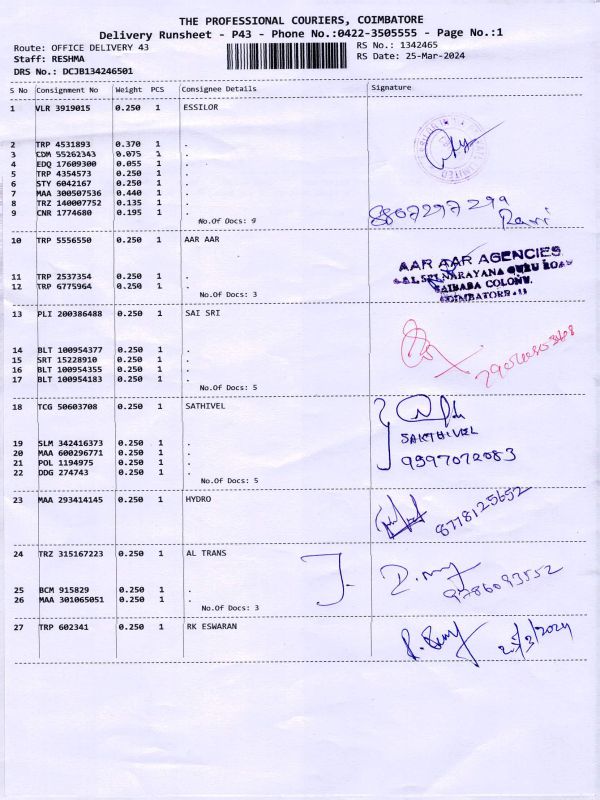 THE PROFESSIONAL COURIERS, COIMBATORE
Delivery Runsheet - P43 - Phone No.:0422-3505555 - Page No.:1
Route: OFFICE DELIVERY 43 RS No.: 1342465
Staff: RESHMA RS Date: 25-Mar-2024
DRS No.: DCJB134246501
S No Consignment No Weight PCS Consignee Details Signature
1 VLR 3919015 0.250 1 ESSILOR
2 TRP 4531893 0.370 1 .
3 CDM 55262343 0.075 1 .
4 EDQ 17609300 0.055 1 .
5 TRP 4354573 0.250 1 .
6 STY 6042167 0.250 1 .
7 MAA 300507536 0.440 1 .
8 TRZ 140007752 0.135 1 .
9 CNR 1774680 0.195 1 .
No.Of Docs: 9
8807297299
Ravi
10 TRP 5556550 0.250 1 AAR AAR
AAR AAR AGENCIES
11 TRP 2537354 0.250 1 .
12 TRP 6775964 0.250 1 .
SAIBABA COLONY,
COIMBATORE-11
No.Of Docs: 3
13 PLI 200386488 0.250 1 SAI SRI
14 BLT 100954377 0.250 1 .
15 SRT 15228910 0.250 1 .
16 BLT 100954355 0.250 1 .
17 BLT 100954183 0.250 1 .
No.Of Docs: 5
18 TCG 50603708 0.250 1 SATHIVEL
SAKTHIVEL
19 SLM 342416373 0.250 1 .
20 MAA 600296771 0.250 1 .
9597072083
21 POL 1194975 0.250 1 .
22 DDG 274743 0.250 1 .
No.Of Docs: 5
23 MAA 293414145 0.250 1 HYDRO
8778125652
24 TRZ 315167223 0.250 1 AL TRANS
9786093552
25 BCM 915829 0.250 1 .
26 MAA 301065051 0.250 1 .
No.Of Docs: 3
27 TRP 602341 0.250 1 RK ESWARAN
25/3/2024